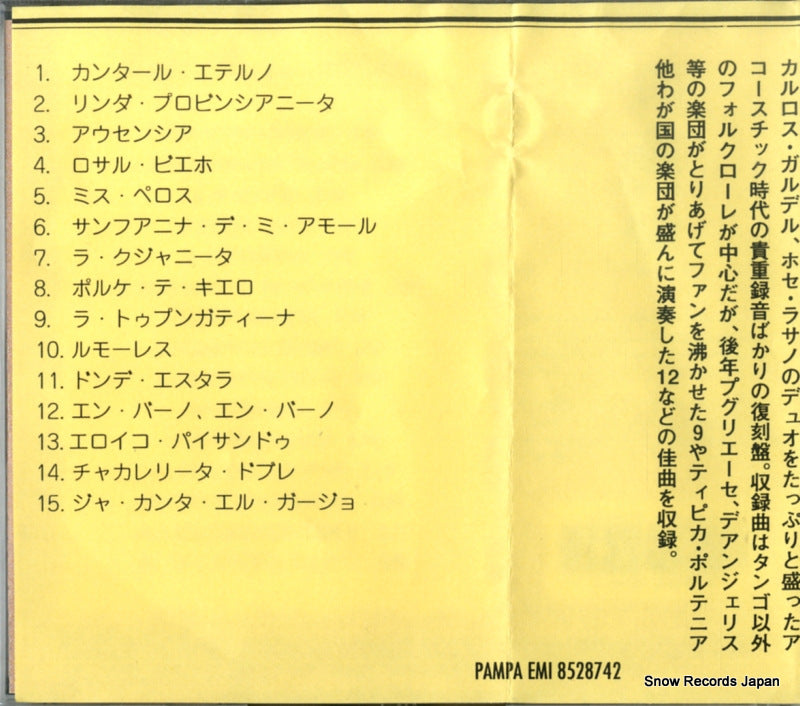 1. カンタール・エテルノ
2. リンダ・プロビンシアニータ
3. アウセンシア
4. ロサル・ビエホ
5. ミス・ペロス
6. サンフアニナ・デ・ミ・アモール
7. ラ・クジャニータ
8. ポルケ・テ・キエロ
9. ラ・トゥプンガティーナ
10. ルモーレス
11. ドンデ・エスタラ
12. エン・バーノ、エン・バーノ
13. エロイコ・パイサンドゥ
14. チャカレリータ・ドブレ
15. ジャ・カンタ・エル・ガージョ
カルロス・ガルデル、ホセ・ラサノのデュオをたっぷりと盛ったア
コースチック時代の貴重録音ばかりの復刻盤。収録曲はタンゴ以外
のフォルクローレが中心だが、後年プグリエーセ、デアンジェリス
等の楽団がとりあげてファンを沸かせた9やティピカ・ポルテニア
他わが国の楽団が盛んに演奏した12などの佳曲を収録。
PAMPA EMI 8528742
Snow Records Japan